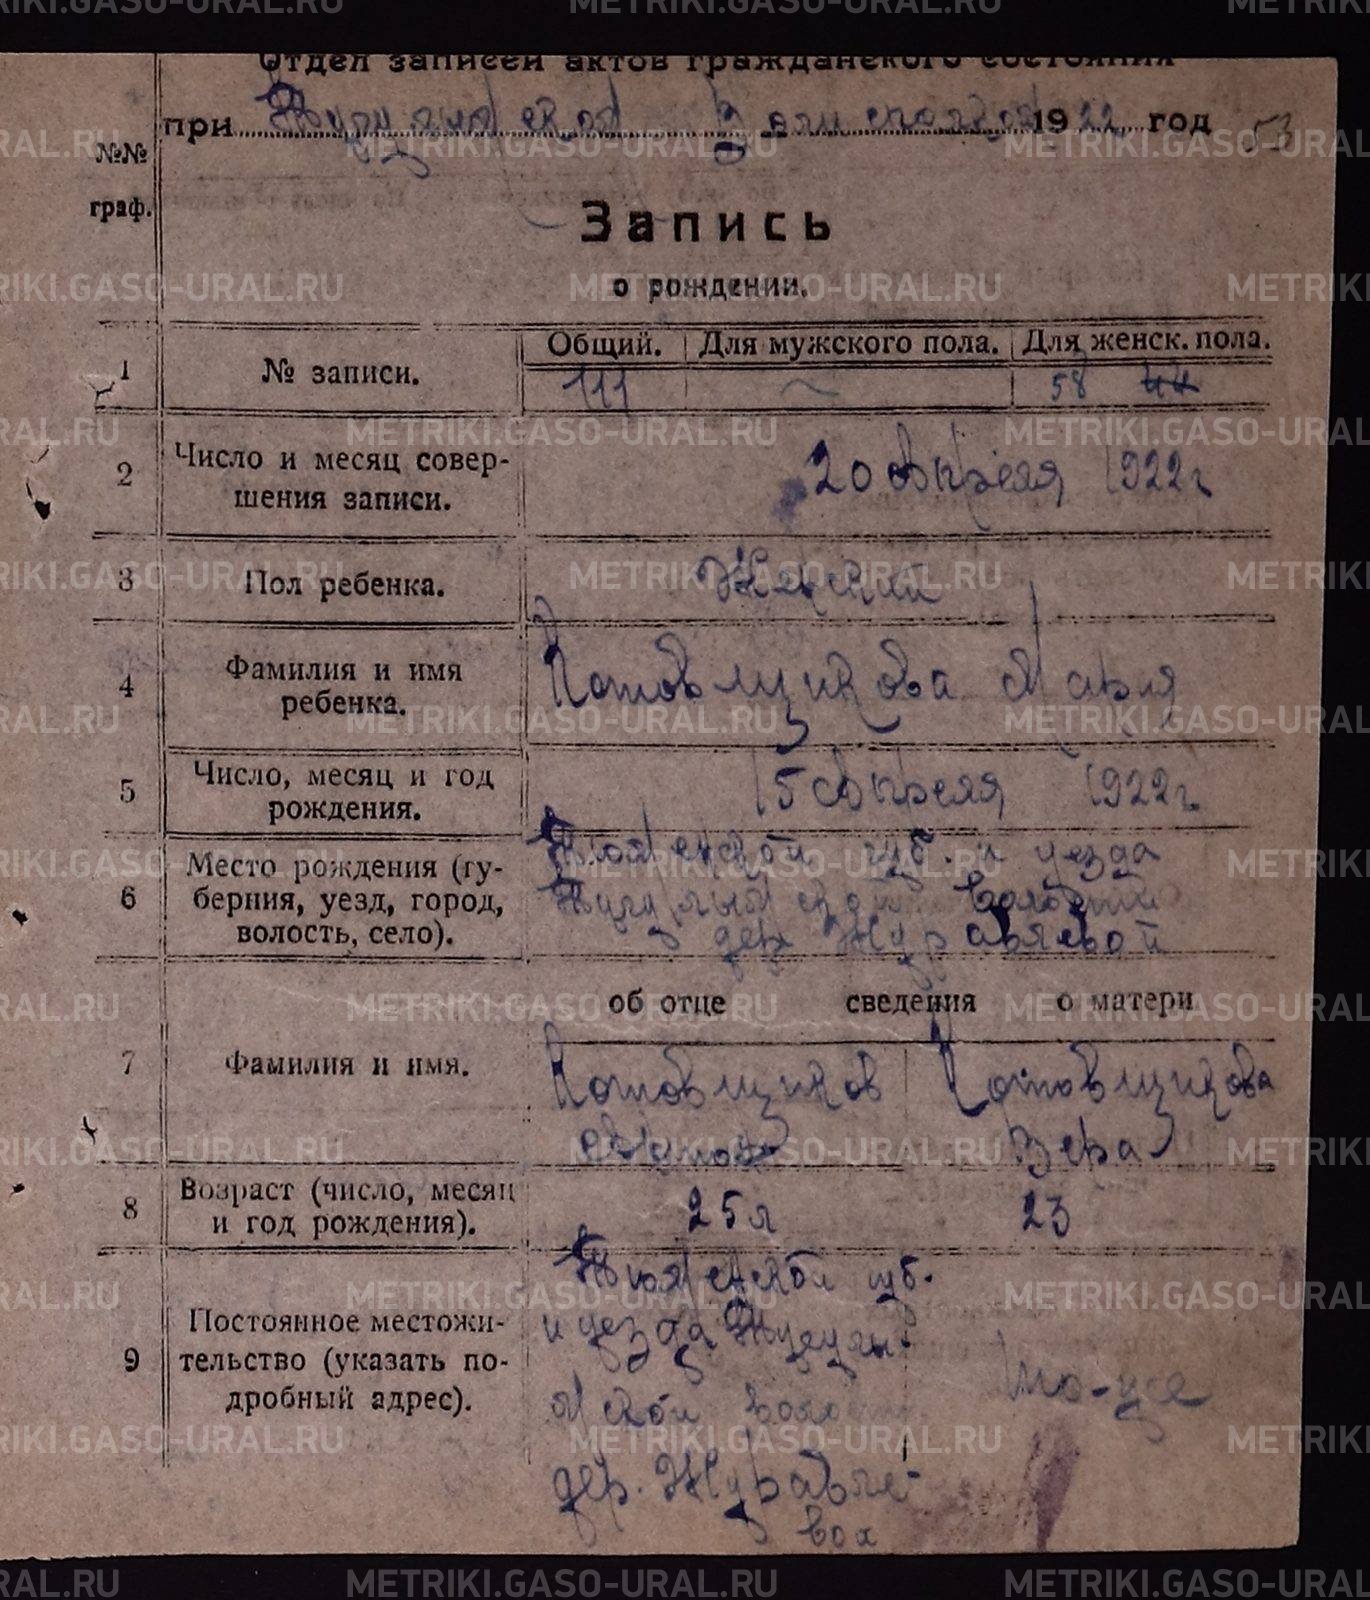 Отдел записей актов гражданского состояния
при Тугулымской Волисполкоме 1922 год 53
№№ граф.
Запись
о рождении.
Общий. Для мужского пола. Для женск. пола.
1 № записи. 111 58 44
2 Число и месяц совер-
шения записи. 20 апреля 1922 г
3 Пол ребенка. Женский
4 Фамилия и имя
ребенка. Котовщикова Мария
5 Число, месяц и год
рождения. 15 апреля 1922 г
6 Место рождения (гу-
берния, уезд, город,
волость, село). Тюменской губ. и уезда
Тугулымской волости
дер Журавлевой
об отце сведения о матери
7 Фамилия и имя. Котовщиков Котовщикова
Вера
8 Возраст (число, месяц
и год рождения). 25 л 23
9 Постоянное местожи-
тельство (указать по-
дробный адрес). Тюменской губ.
и уезда Тугулы-
мской воло
дер. Журавле-
вой
то-же
METRIKI.GASO-URAL.RU